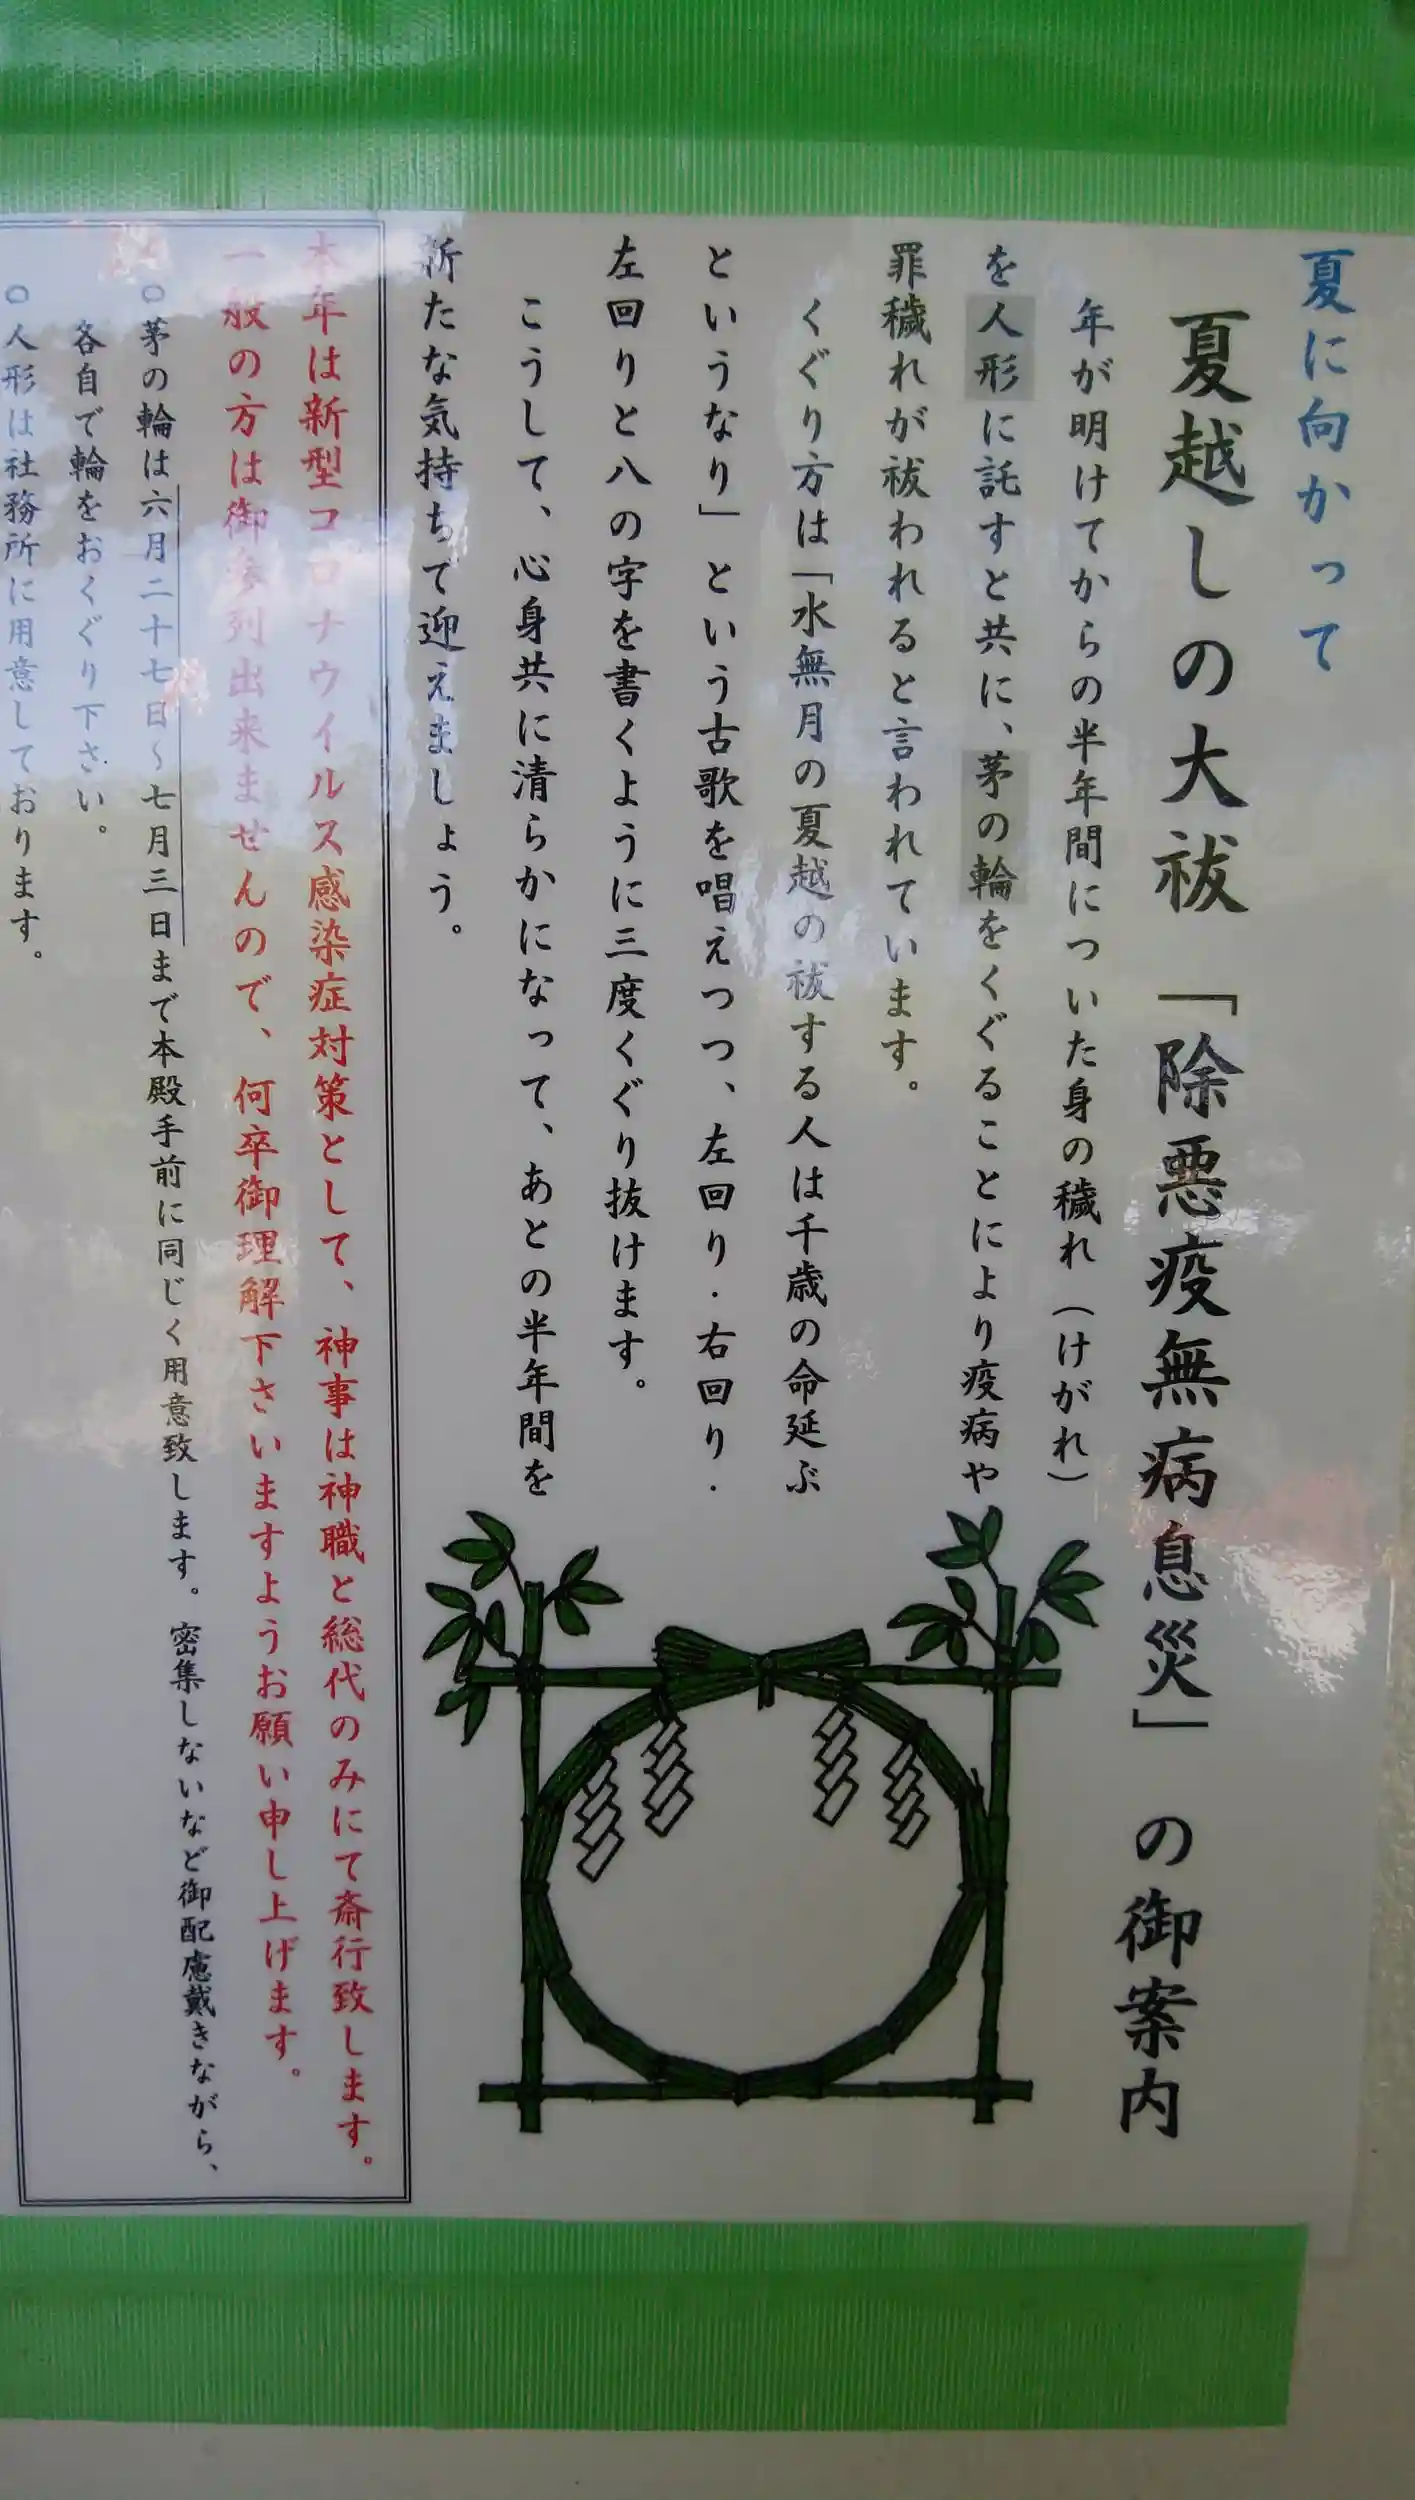 夏に向かって
夏越しの大祓「除悪疫無病息災」の御案内
年が明けてからの半年間についた身の穢れ（けがれ）
を人形に託すと共に、茅の輪をくぐることにより疫病や
罪穢れが祓われると言われています。
くぐり方は「水無月の夏越の祓する人は千歳の命延ぶ
というなり」という古歌を唱えつつ、左回り・右回り・
左回りと八の字を書くように三度くぐり抜けます。
こうして、心身共に清らかになって、あとの半年間を
新たな気持ちで迎えましょう。
本年は新型コロナウイルス感染症対策として、神事は神職と総代のみにて斎行致します。
一般の方は御参列出来ませんので、何卒御理解下さいますようお願い申し上げます。
○茅の輪は六月二十七日～七月三日まで本殿手前に同じく用意致します。密集しないなど御配慮戴きながら、
各自で輪をおくぐり下さい。
○人形は社務所に用意しております。